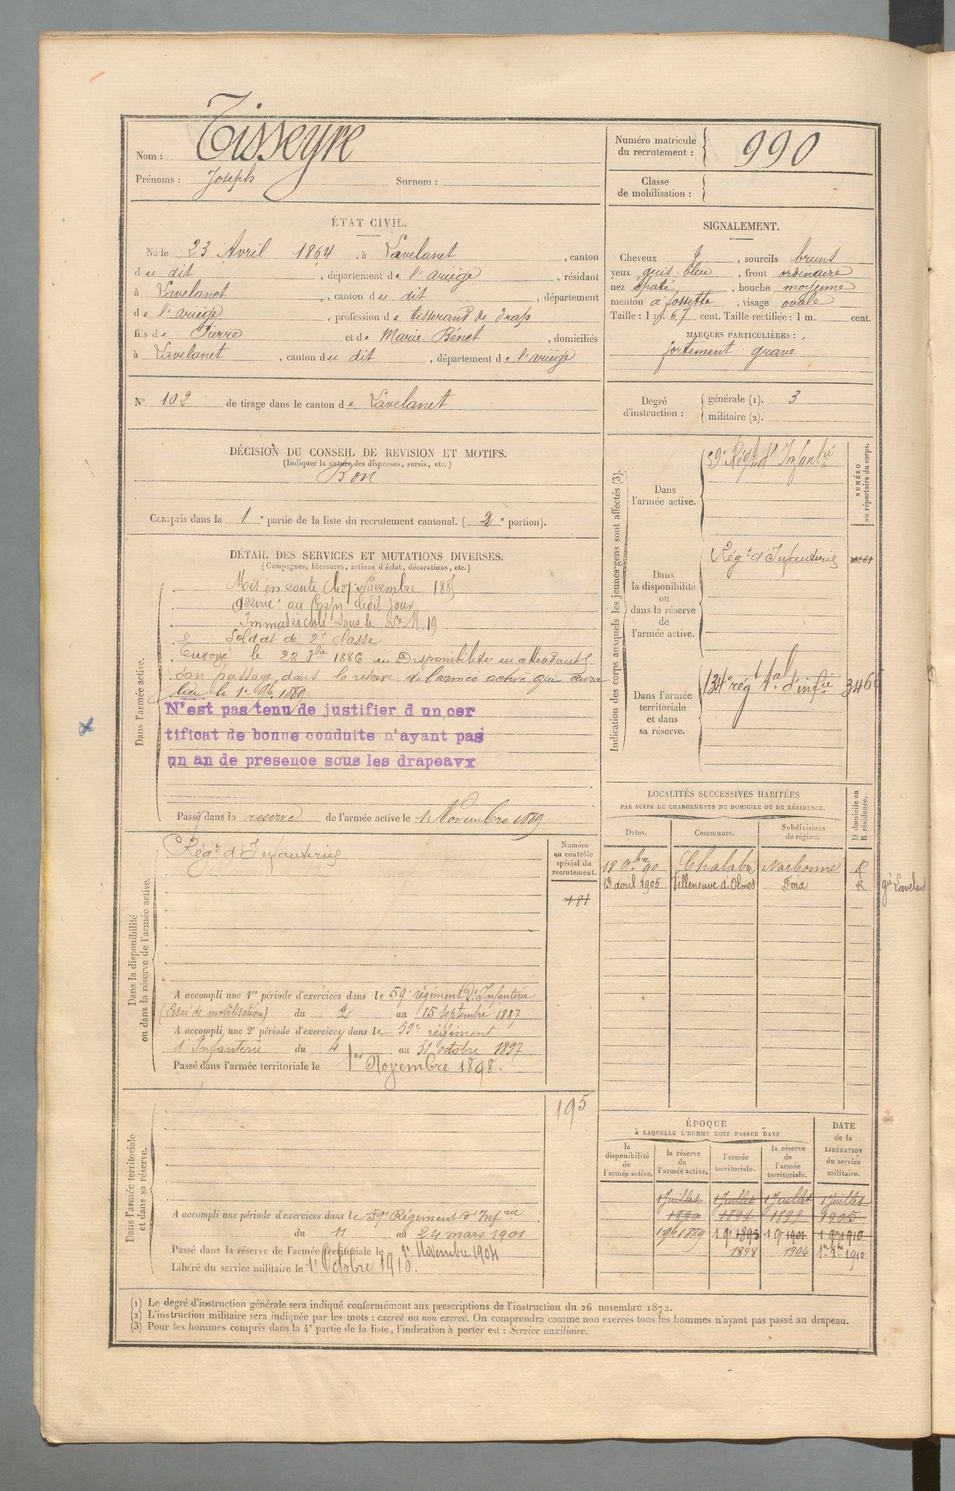 Nom : Tisseyre
Prénoms : Joseph Surnom :
Numéro matricule
du recrutement : 990
Classe
de mobilisation :
ÉTAT CIVIL.
Né le 23 Avril 1864, à Lavelanet, canton
du dit, département de l'ariège, résidant
à Lavelanet, canton du dit, département
de l'ariège, profession de tisserand de draps
fils de Pierre et de Marie Bénet, domiciliés
à Lavelanet, canton du dit, département de l'ariège
N° 102 de tirage dans le canton de Lavelanet
SIGNALEMENT.
Cheveux, sourcils bruns
yeux gris-bleu, front ordinaire
nez épaté, bouche moyenne
menton à fossette, visage ovale
Taille : 1 m. 67 cent. Taille rectifiée : 1 m. cent.
MARQUES PARTICULIÈRES :
fortement gravé
Degré
d'instruction :
générale (1). 3
militaire (2).
DÉCISION DU CONSEIL DE REVISION ET MOTIFS.
(Indiquer la nature des dispenses, sursis, etc.)
Bon
Compris dans la 1e partie de la liste du recrutement cantonal. (2e portion).
DÉTAIL DES SERVICES ET MUTATIONS DIVERSES.
(Campagnes, blessures, actions d'éclat, décorations, etc.)
Dans l'armée active.
Mis en route Novembre 188
Arrivé au Corps ledit jour
Immatriculé sous le
Soldat de 2e classe
Envoyé le 22 9bre 1886 en Disponibilité en attendant
son passage dans la réserve de l'armée active qui aura
lieu le 1er 9b. 1889
N'est pas tenu de justifier d un cer
tificat de bonne conduite n'ayant pas
un an de presence sous les drapeaux
Passé dans la reserve de l'armée active le 1 Novembre 1889
Indication des corps auxquels les jeunes gens sont affectés (3).
NUMÉRO
au répertoire du corps.
Dans
l'armée active.
59e Régt d'Infanie
Dans
la disponibilité
ou dans la réserve
de
l'armée active.
Régt d'Infanterie
Dans l'armée
territoriale
et dans
sa réserve.
134e rég tal d'infie
LOCALITÉS SUCCESSIVES HABITÉES
PAR SUITE DE CHANGEMENTS DE DOMICILE OU DE RÉSIDENCE.
D domicile ou
R résidence.
Dates. Communes. Subdivisions
de région.
90 Chalabre Narbonne R
13 avril 1905 Villeneuve d'Olmes Foix R
Dans la disponibilité
ou dans la réserve de l'armée active.
Régt d'Infanterie
Numéro
au contrôle
spécial du
recrutement.
181
A accompli une 1re période d'exercices dans le 59e régiment d'Infanterie
(Essai de mobilisation) du 2 au 15 septembre 1887
A accompli une 2e période d'exercices dans le 59e régiment
d'Infanterie du 4 au 31 octobre 1897
Passé dans l'armée territoriale le 1er Novembre 1898.
Dans l'armée territoriale
et dans sa réserve.
195
A accompli une période d'exercices dans le 59e Régiment d'Infrie
du 11 au 24 mars 1901
Passé dans la réserve de l'armée territoriale le 1er Novembre 1904
Libéré du service militaire le 1er Octobre 1910.
ÉPOQUE
À LAQUELLE L'HOMME DOIT PASSER DANS
la
disponibilité
de
l'armée active.
la réserve
de
l'armée active.
l'armée
territoriale.
la réserve
de
l'armée
territoriale.
DATE
de la
LIBÉRATION
du service
militaire.
1 Juillet 1 Juillet 1 Juillet 1 Juillet
1890 1894 1899 1905
1 9b 1889 1 9b 1895 1 9b 1901 1 9b 1910
1898 1904 1910
(1) Le degré d'instruction générale sera indiqué conformément aux prescriptions de l'instruction du 26 novembre 1872.
(2) L'instruction militaire sera indiquée par les mots : exercé ou non exercé. On comprendra comme non exercés tous les hommes n'ayant pas passé au drapeau.
(3) Pour les hommes compris dans la 4e partie de la liste, l'indication à porter est : Service auxiliaire.